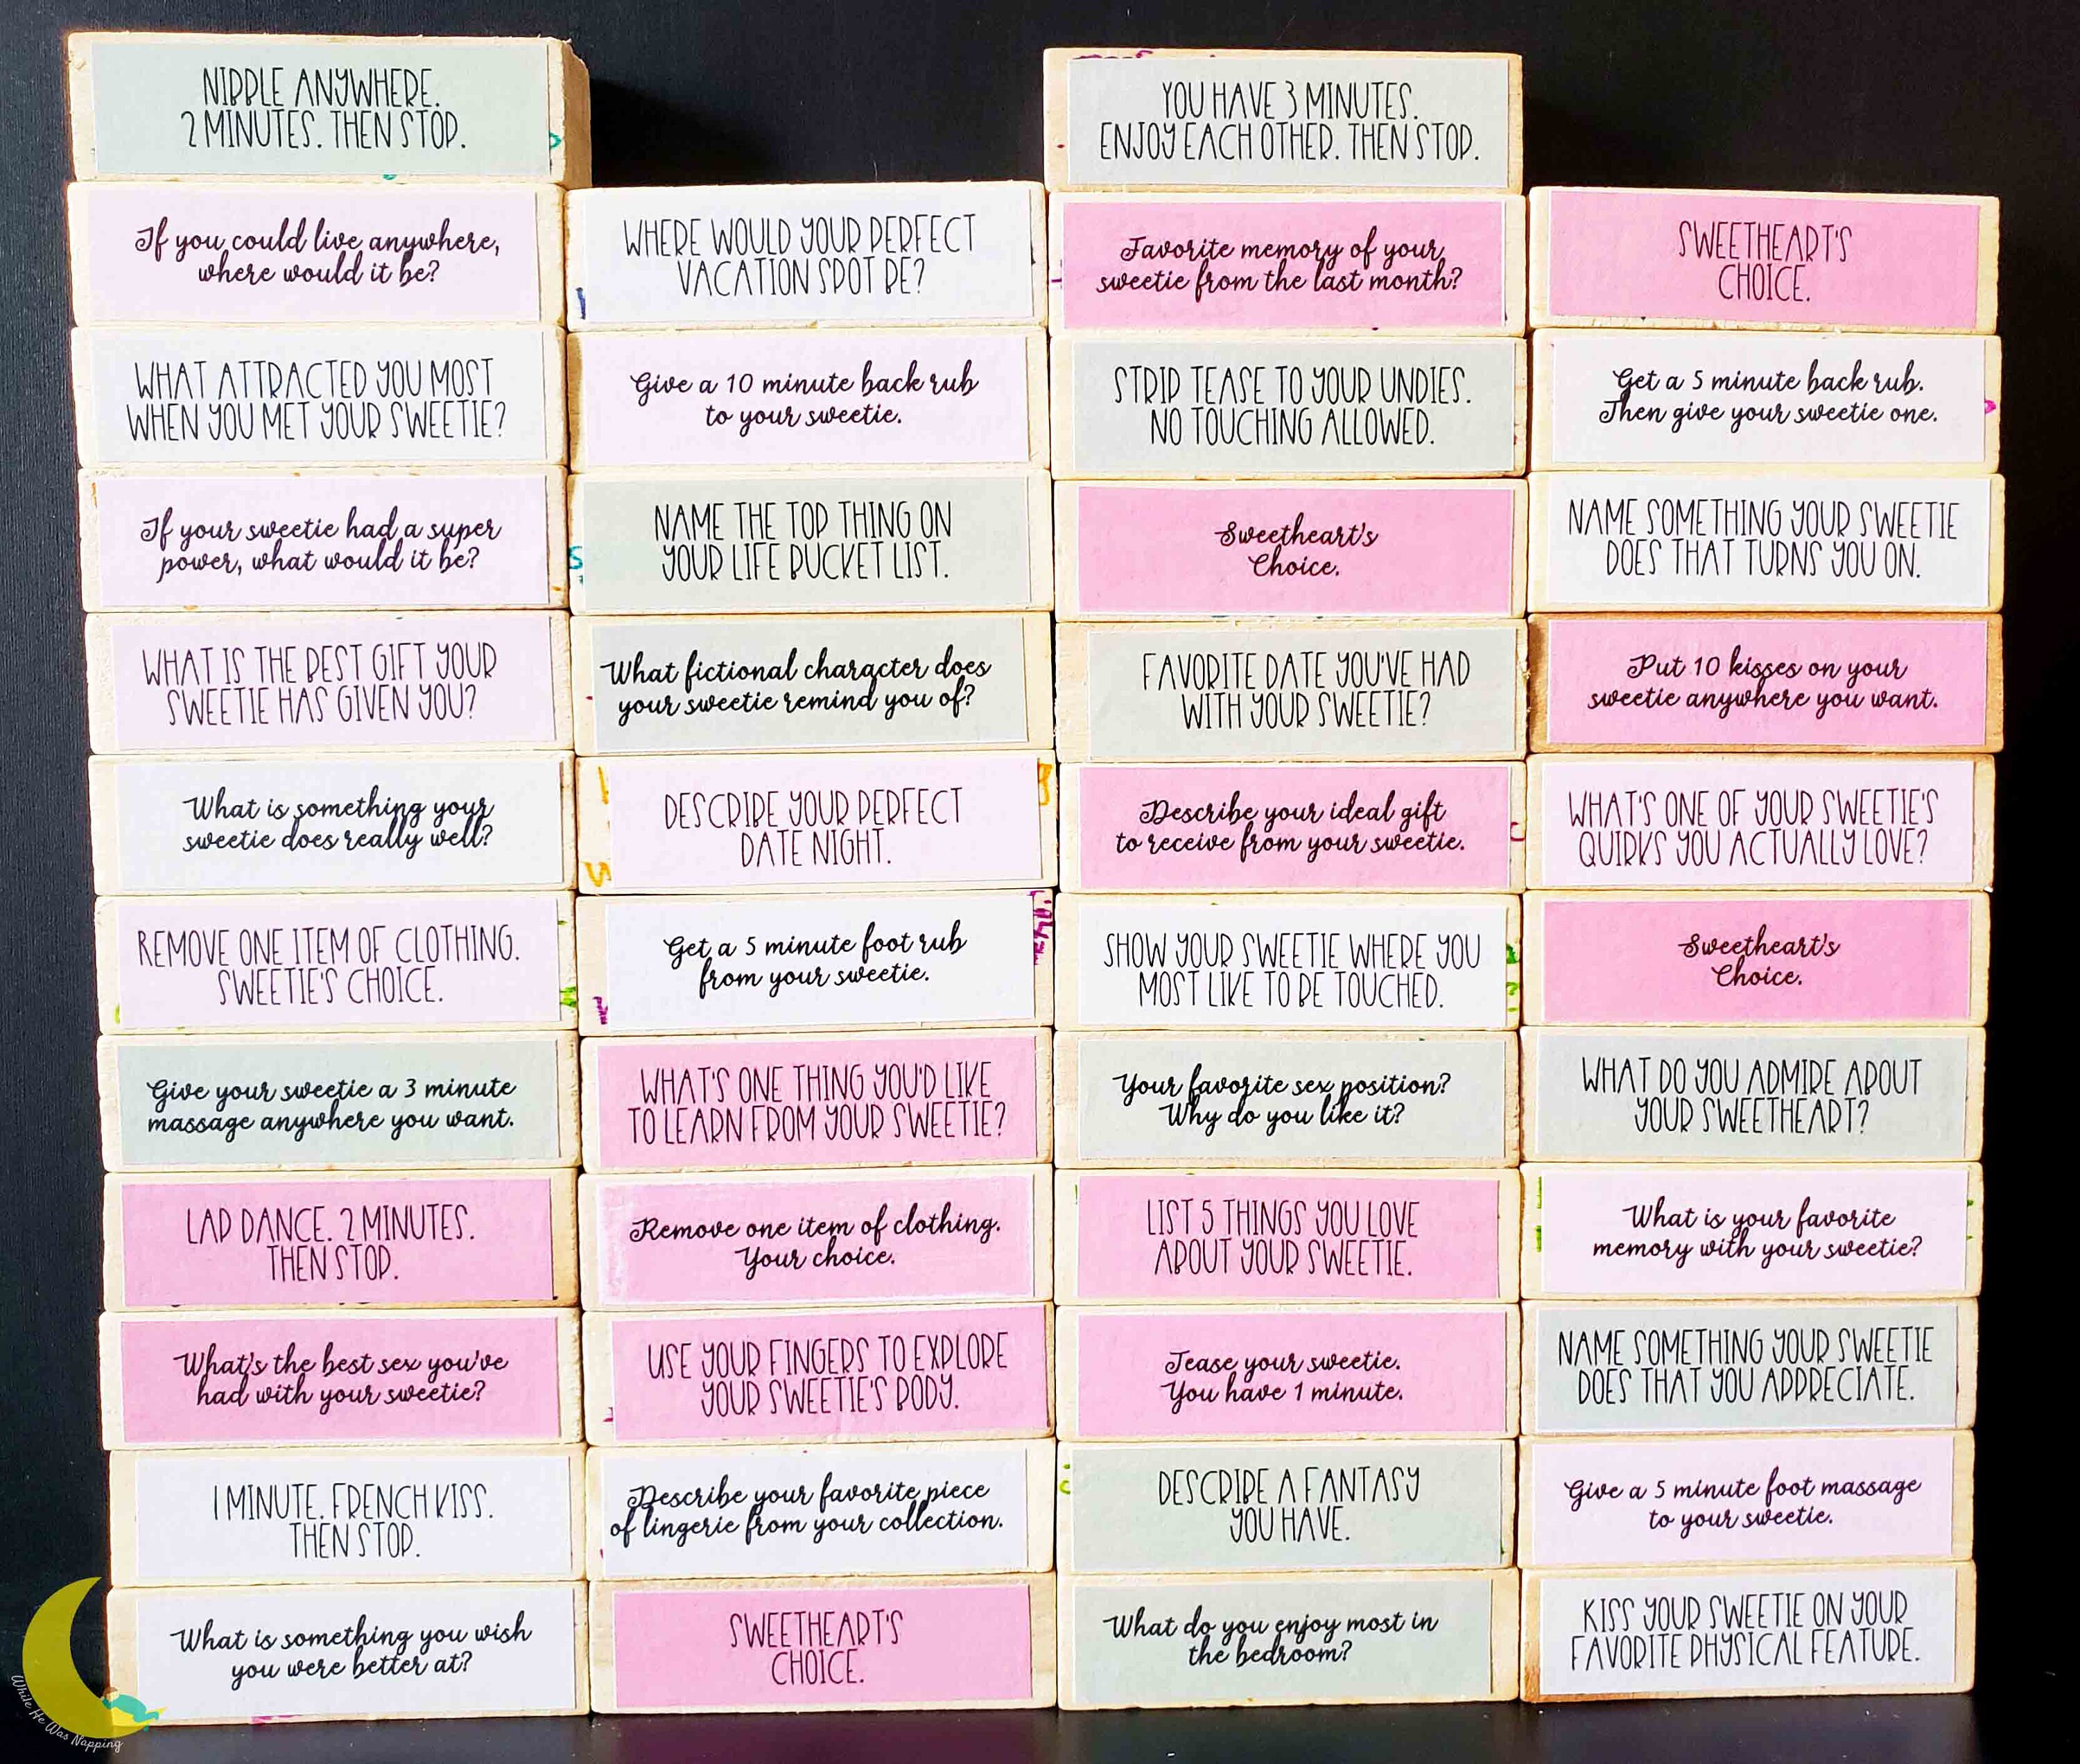 NIBBLE ANYWHERE.
2 MINUTES. THEN STOP.
If you could live anywhere,
where would it be?
WHAT ATTRACTED YOU MOST
WHEN YOU MET YOUR SWEETIE?
If your sweetie had a super
power, what would it be?
WHAT IS THE BEST GIFT YOUR
SWEETIE HAS GIVEN YOU?
What is something your
sweetie does really well?
REMOVE ONE ITEM OF CLOTHING.
SWEETIE'S CHOICE.
Give your sweetie a 3 minute
massage anywhere you want.
LAP DANCE. 2 MINUTES.
THEN STOP.
What's the best sex you've
had with your sweetie?
1 MINUTE. FRENCH KISS.
THEN STOP.
What is something you wish
you were better at?
WHERE WOULD YOUR PERFECT
VACATION SPOT BE?
Give a 10 minute back rub
to your sweetie.
NAME THE TOP THING ON
YOUR LIFE BUCKET LIST.
What fictional character does
your sweetie remind you of?
DESCRIBE YOUR PERFECT
DATE NIGHT.
Get a 5 minute foot rub
from your sweetie.
WHAT'S ONE THING YOU'D LIKE
TO LEARN FROM YOUR SWEETIE?
Remove one item of clothing.
Your choice.
USE YOUR FINGERS TO EXPLORE
YOUR SWEETIE'S BODY.
Describe your favorite piece
of lingerie from your collection.
SWEETHEART'S
CHOICE.
YOU HAVE 3 MINUTES.
ENJOY EACH OTHER. THEN STOP.
Favorite memory of your
sweetie from the last month?
STRIP TEASE TO YOUR UNDIES.
NO TOUCHING ALLOWED.
Sweetheart's
Choice.
FAVORITE DATE YOU'VE HAD
WITH YOUR SWEETIE?
Describe your ideal gift
to receive from your sweetie.
SHOW YOUR SWEETIE WHERE YOU
MOST LIKE TO BE TOUCHED.
Your favorite sex position?
Why do you like it?
LIST 5 THINGS YOU LOVE
ABOUT YOUR SWEETIE.
Tease your sweetie.
You have 1 minute.
DESCRIBE A FANTASY
YOU HAVE.
What do you enjoy most in
the bedroom?
SWEETHEART'S
CHOICE.
Get a 5 minute back rub.
Then give your sweetie one.
NAME SOMETHING YOUR SWEETIE
DOES THAT TURNS YOU ON.
Put 10 kisses on your
sweetie anywhere you want.
WHAT'S ONE OF YOUR SWEETIE'S
QUIRKS YOU ACTUALLY LOVE?
Sweetheart's
Choice.
WHAT DO YOU ADMIRE ABOUT
YOUR SWEETHEART?
What is your favorite
memory with your sweetie?
NAME SOMETHING YOUR SWEETIE
DOES THAT YOU APPRECIATE.
Give a 5 minute foot massage
to your sweetie.
KISS YOUR SWEETIE ON YOUR
FAVORITE PHYSICAL FEATURE.
While He Was Napping